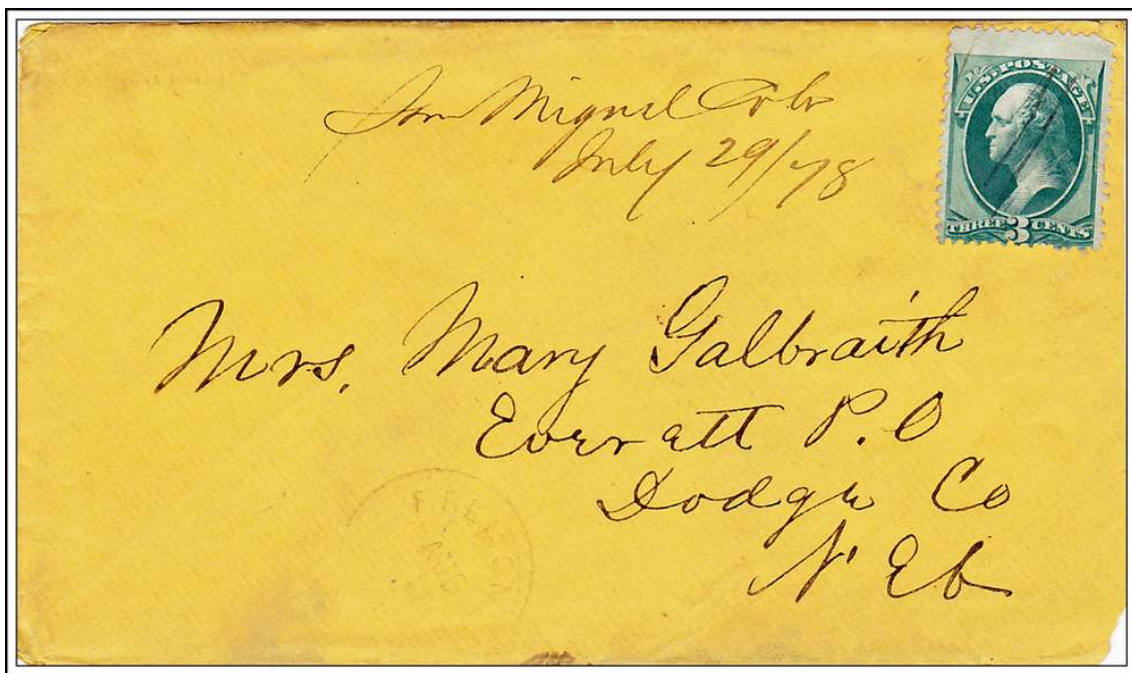 San Miguel Colo
July 29/78
U.S. POSTAGE
THREE 3 CENTS
Mrs. Mary Galbraith
Everatt P.O
Dodge Co
N Eb
FREMONT
AUG